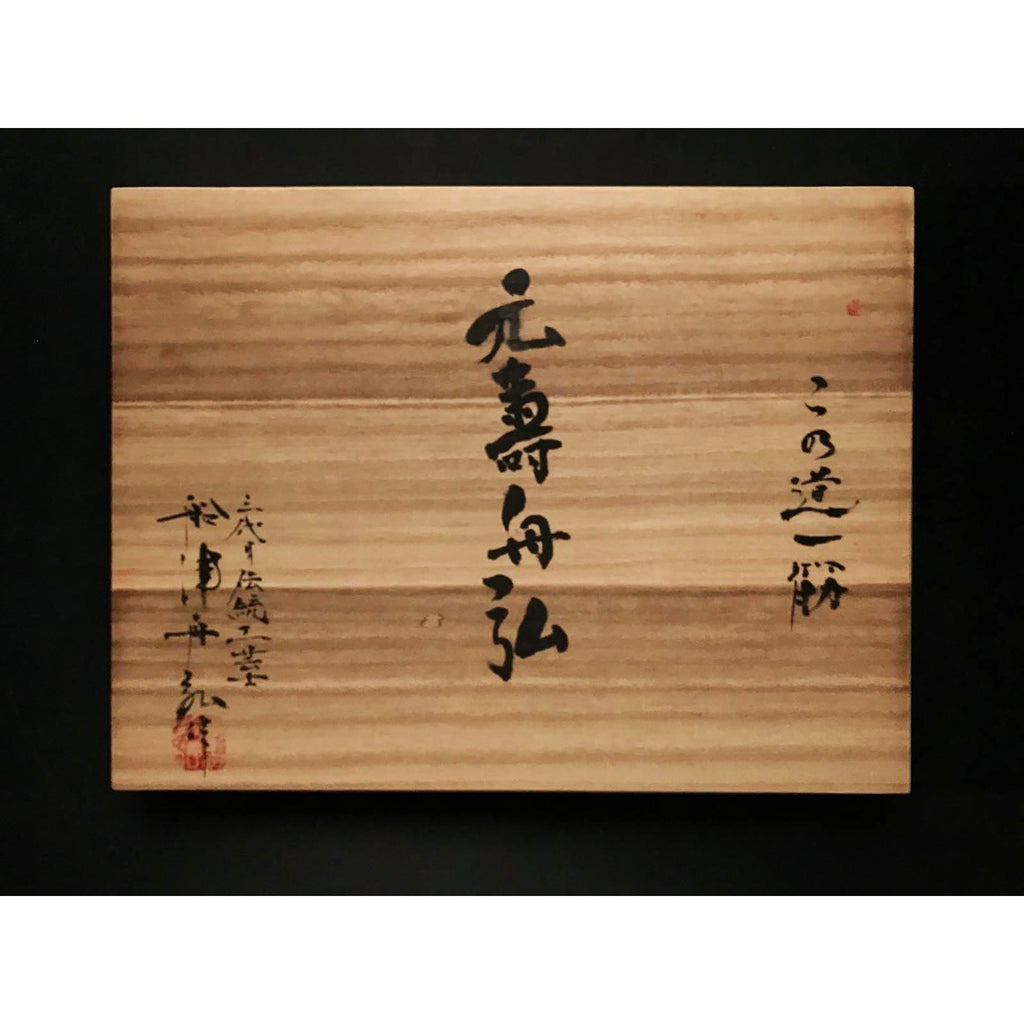 この道一筋
元壽舟弘
三代目伝統工芸士
船津舟弘